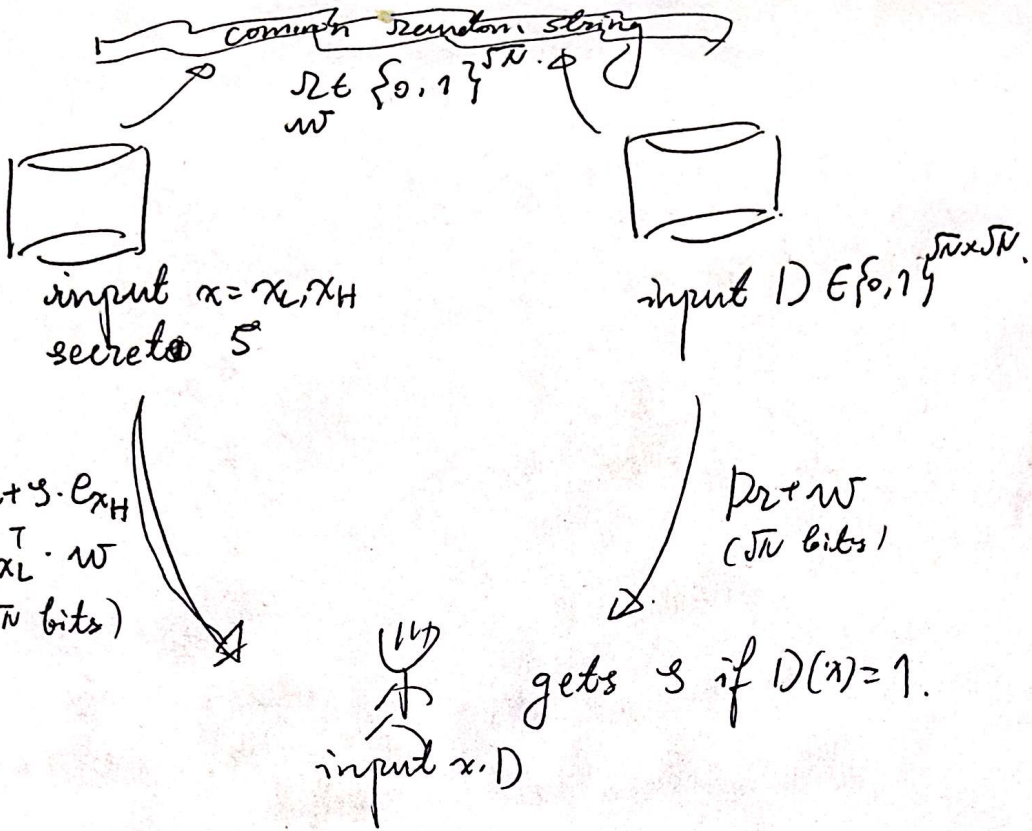 common random string
r ∈ {0,1}^{√N}.
w
input x = x_L, x_H
secret s
input D ∈ {0,1}^{√N×√N}.
+ s · e_{x_H}
x_L^T · w
bits)
Dr + w
(√N bits)
gets s if D(x)=1.
input x, D